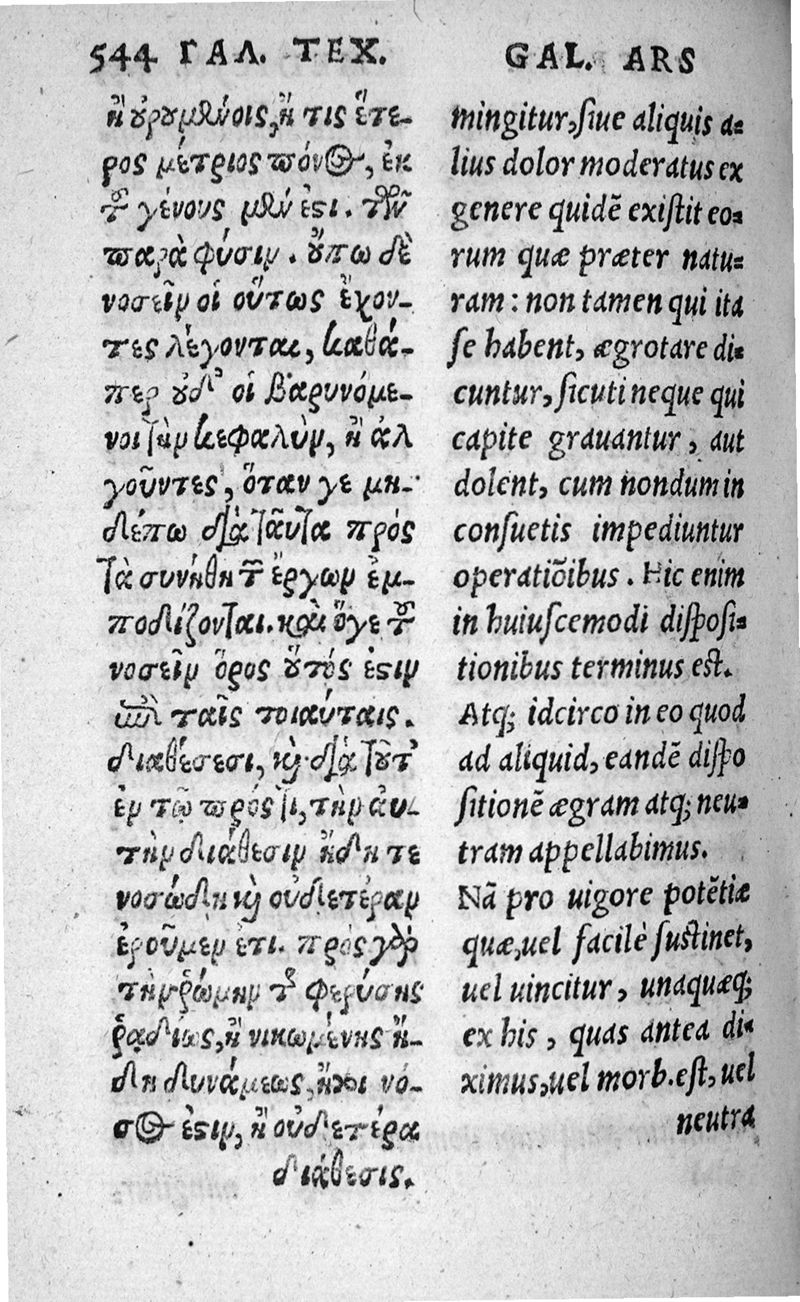 544 ΓΑΛ. ΤΕΧ.
ἢ οὐρουμένοις, ἤ τις ἕτε-
ρος μέτριος πόνος, ἐκ
τοῦ γένους μέν ἐστι. τῶν
παρὰ φύσιν. οὔπω δὲ
νοσεῖν οἱ οὕτως ἔχον-
τες λέγονται, καθά-
περ οὐδ' οἱ βαρυνόμε-
νοι τὴν κεφαλὴν, ἢ ἀλ
γοῦντες, ὅταν γε μη-
δέπω διὰ ταῦτα πρός
τὰ συνήθη τῶν ἔργων ἐμ-
ποδίζονται. καὶ ὅγε τοῦ
νοσεῖν ὅρος οὗτός ἐστιν
ἐπὶ ταῖς τοιαύταις.
διαθέσεσι, καὶ διὰ τοῦτ'
ἐν τῷ πρός τι, τὴν αὐ-
τὴν διάθεσιν ἤδη τε
νοσώδη καὶ οὐδετέραν
ἐροῦμεν ἔτι. πρὸς γὰρ
τὴν ῥώμην τῆς φερούσης
ῥᾳδίως, ἢ νικωμένης ἤ-
δη δυνάμεως, ἤτοι νό-
σος ἐστιν, ἢ οὐδετέρα
διάθεσις.
GAL. ARS
mingitur, siue aliquis a-
lius dolor moderatus ex
genere quidē existit eo-
rum quæ præter natu-
ram: non tamen qui ita
se habent, ægrotare di-
cuntur, sicuti neque qui
capite grauantur, aut
dolent, cum nondum in
consuetis impediuntur
operatiōibus. Hic enim
in huiuscemodi disposi-
tionibus terminus est.
Atq; idcirco in eo quod
ad aliquid, eandē dispo
sitionē ægram atq; neu-
tram appellabimus.
Nā pro uigore potētiæ
quæ, uel facilè sustinet,
uel uincitur, unaquæq;
ex his, quas antea di-
ximus, uel morb. est, uel
neutra